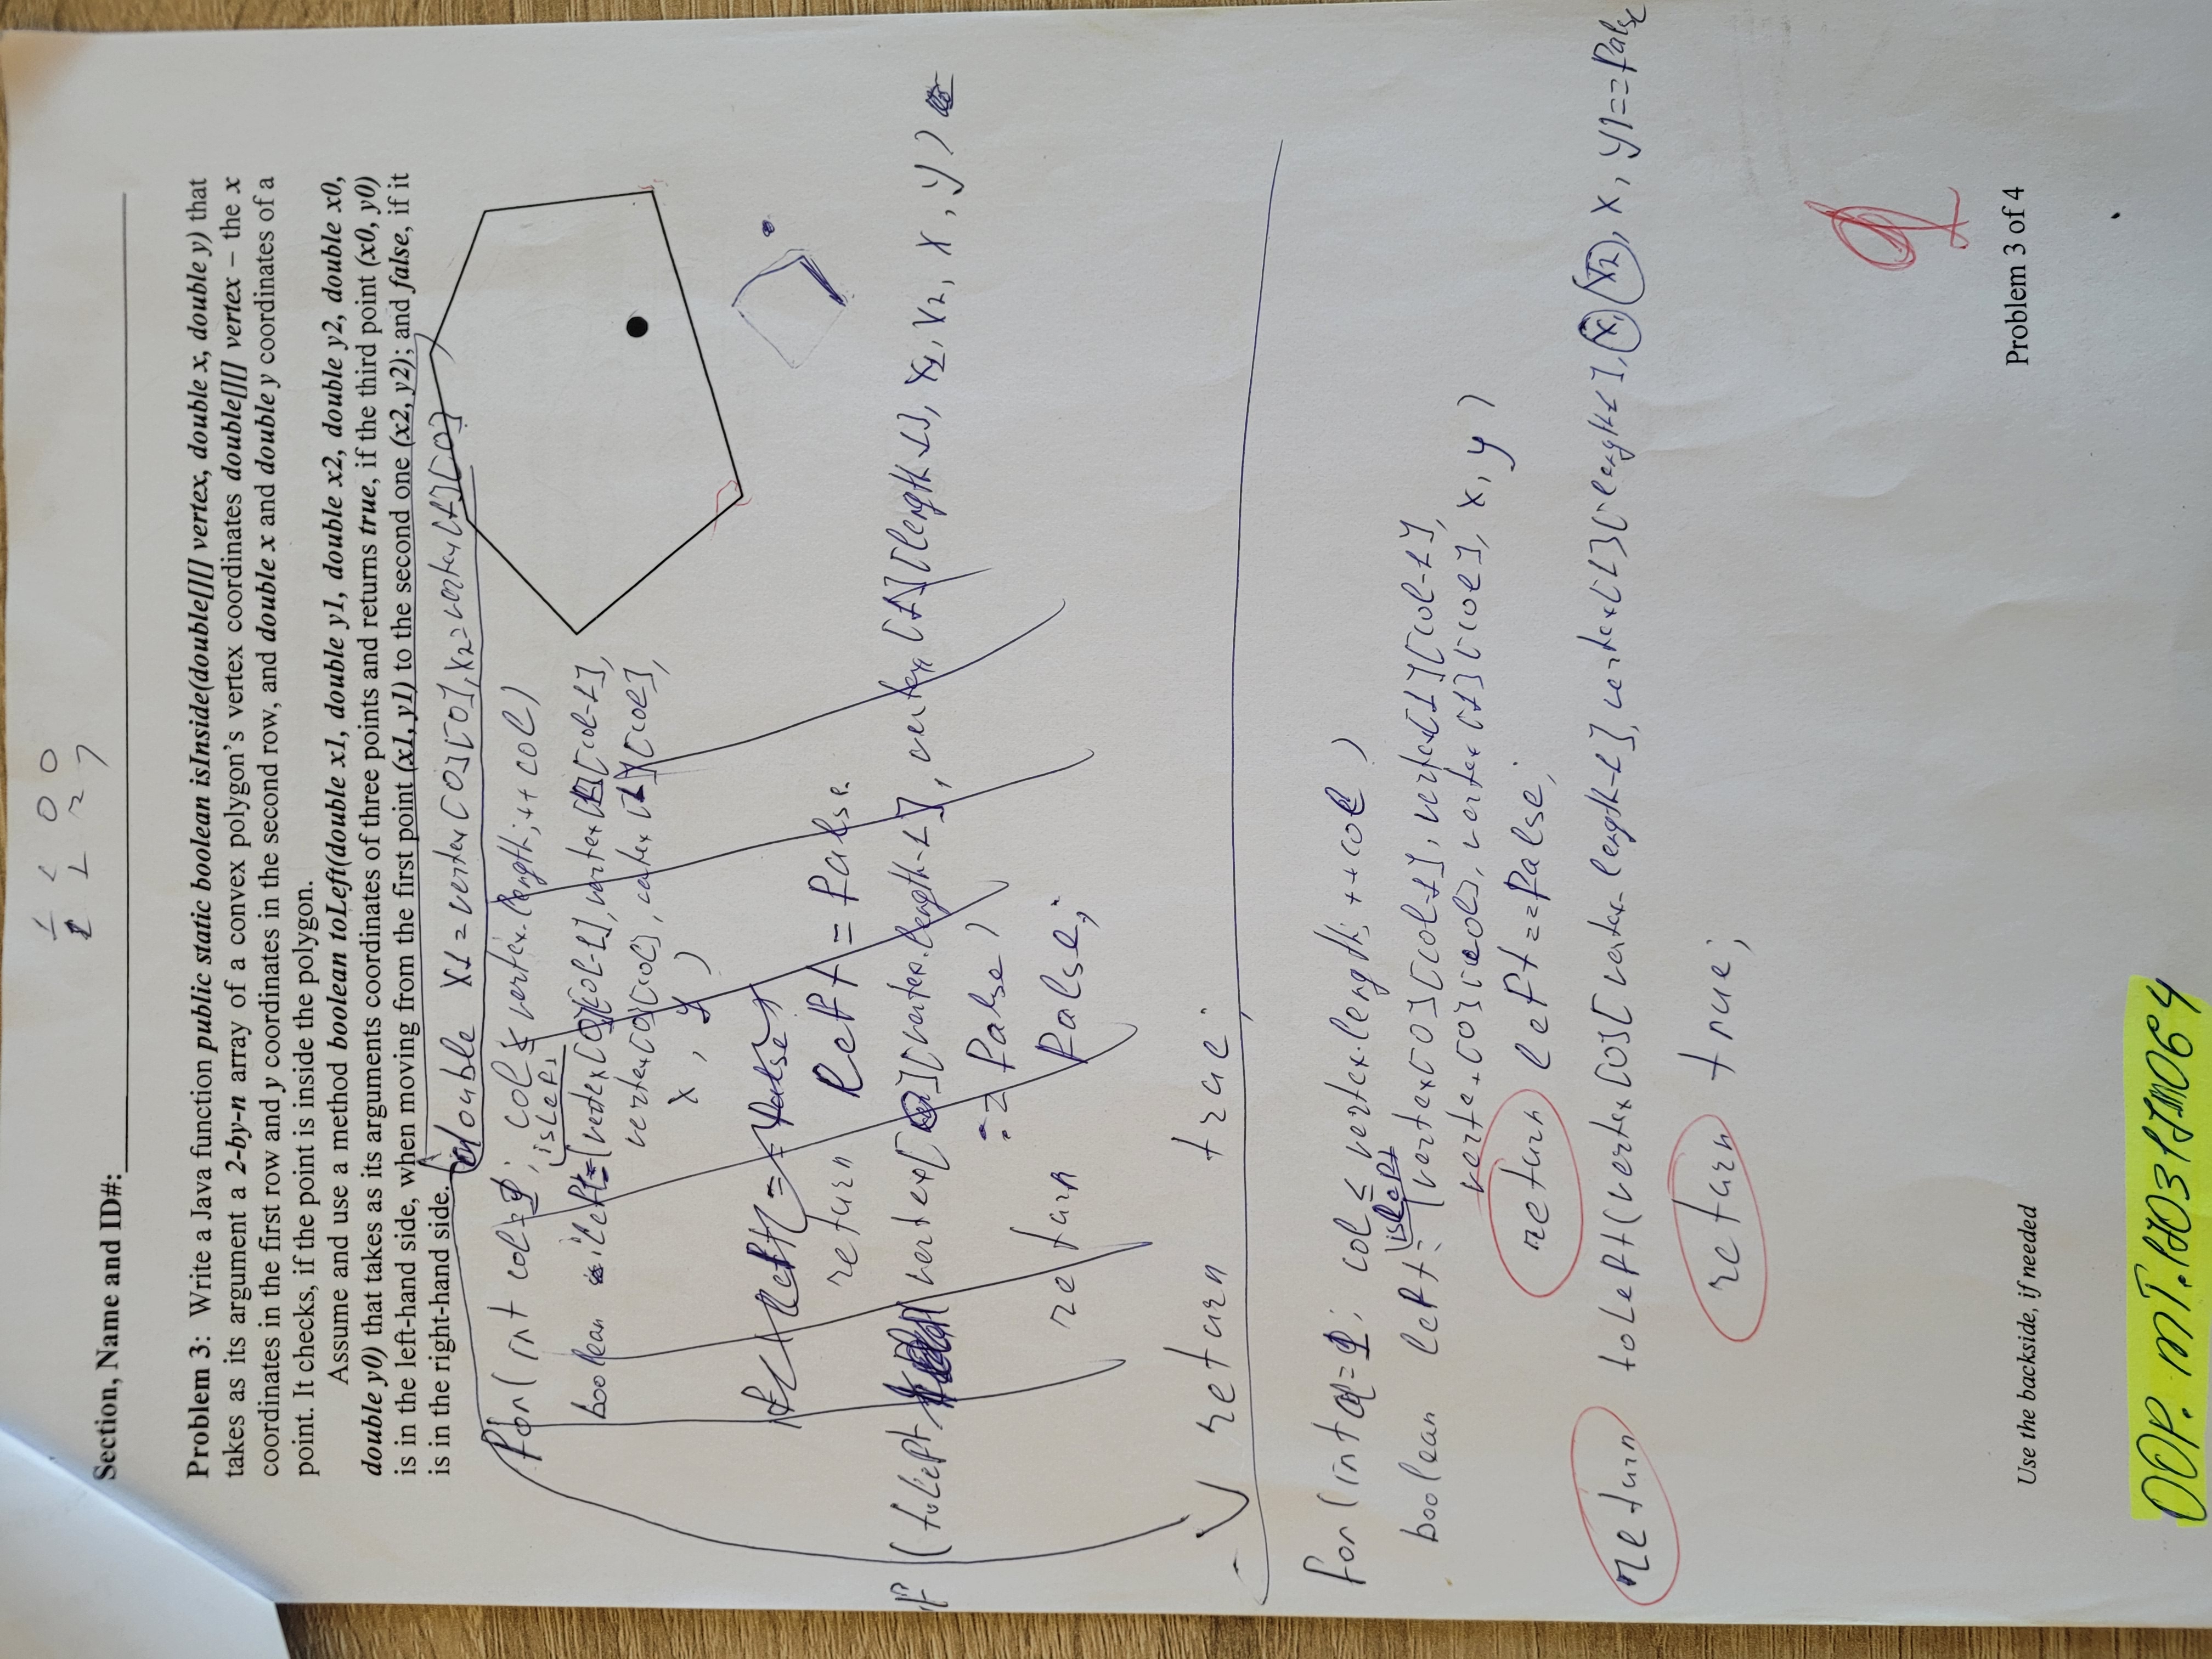 1 1 0 0
1 1 2 7
Section, Name and ID#:
Problem 3: Write a Java function public static boolean isInside(double[][] vertex, double x, double y) that
takes as its argument a 2-by-n array of a convex polygon's vertex coordinates double[][] vertex – the x
coordinates in the first row and y coordinates in the second row, and double x and double y coordinates of a
point. It checks, if the point is inside the polygon.
Assume and use a method boolean toLeft(double x1, double y1, double x2, double y2, double x0,
double y0) that takes as its arguments coordinates of three points and returns true, if the third point (x0, y0)
is in the left-hand side, when moving from the first point (x1, y1) to the second one (x2, y2); and false, if it
is in the right-hand side.
double x1=vertex[0][0], x2=vertex[1][0]
for(int col=1; col≤vertex.length;++col)
isLeft
boolean left=(vertex[0][col-1], vertex[1][col-1],
vertex[0][col], vertex[1][col],
x, y)
if(left==false)
return left=false.
if (toLeft(vertex[0][vertex.length-1], vertex[1][length-1], x1, x2, x, y)
== false)
return false;
return true;
for(int col=1; col≤vertex.length;++col)
isLeft
boolean left=(vertex[0][col-1], vertex[1][col-1],
vertex[0][col], vertex[1][col], x, y)
return left==false;
return toLeft(vertex[0][vertex.length-1], vertex[1][length-1], x1, x2, x, y)==false
return true;
Use the backside, if needed
Problem 3 of 4